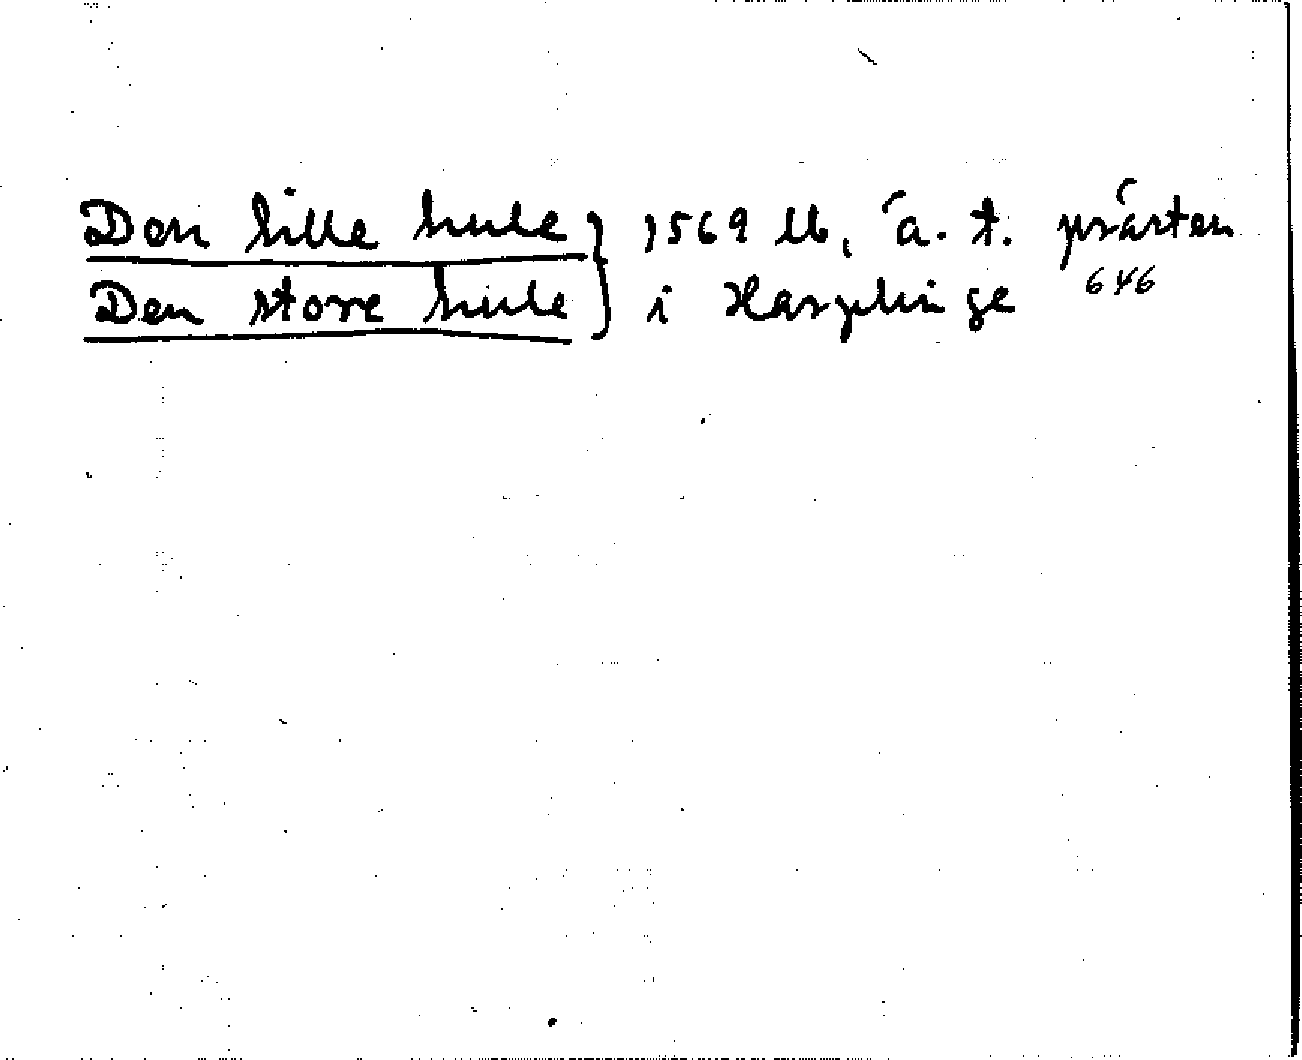 Den lille hule } 1569 lb, ä. t. prästen
Den store hule } i Harplinge 646